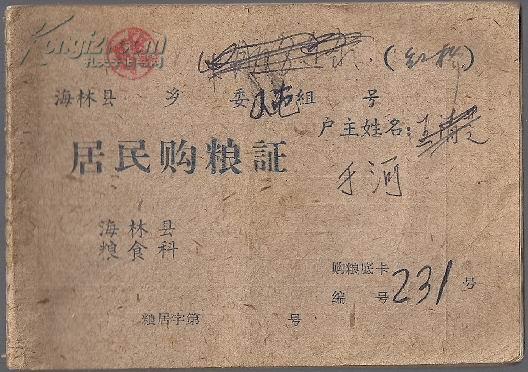 Kongfz.com
孔夫子旧书网
(红松)
海林县 乡 委 屯 组 号
户主姓名:
居民购粮証
河
海林县
粮食科
购粮底卡
编 号 231 号
粮居字第 号